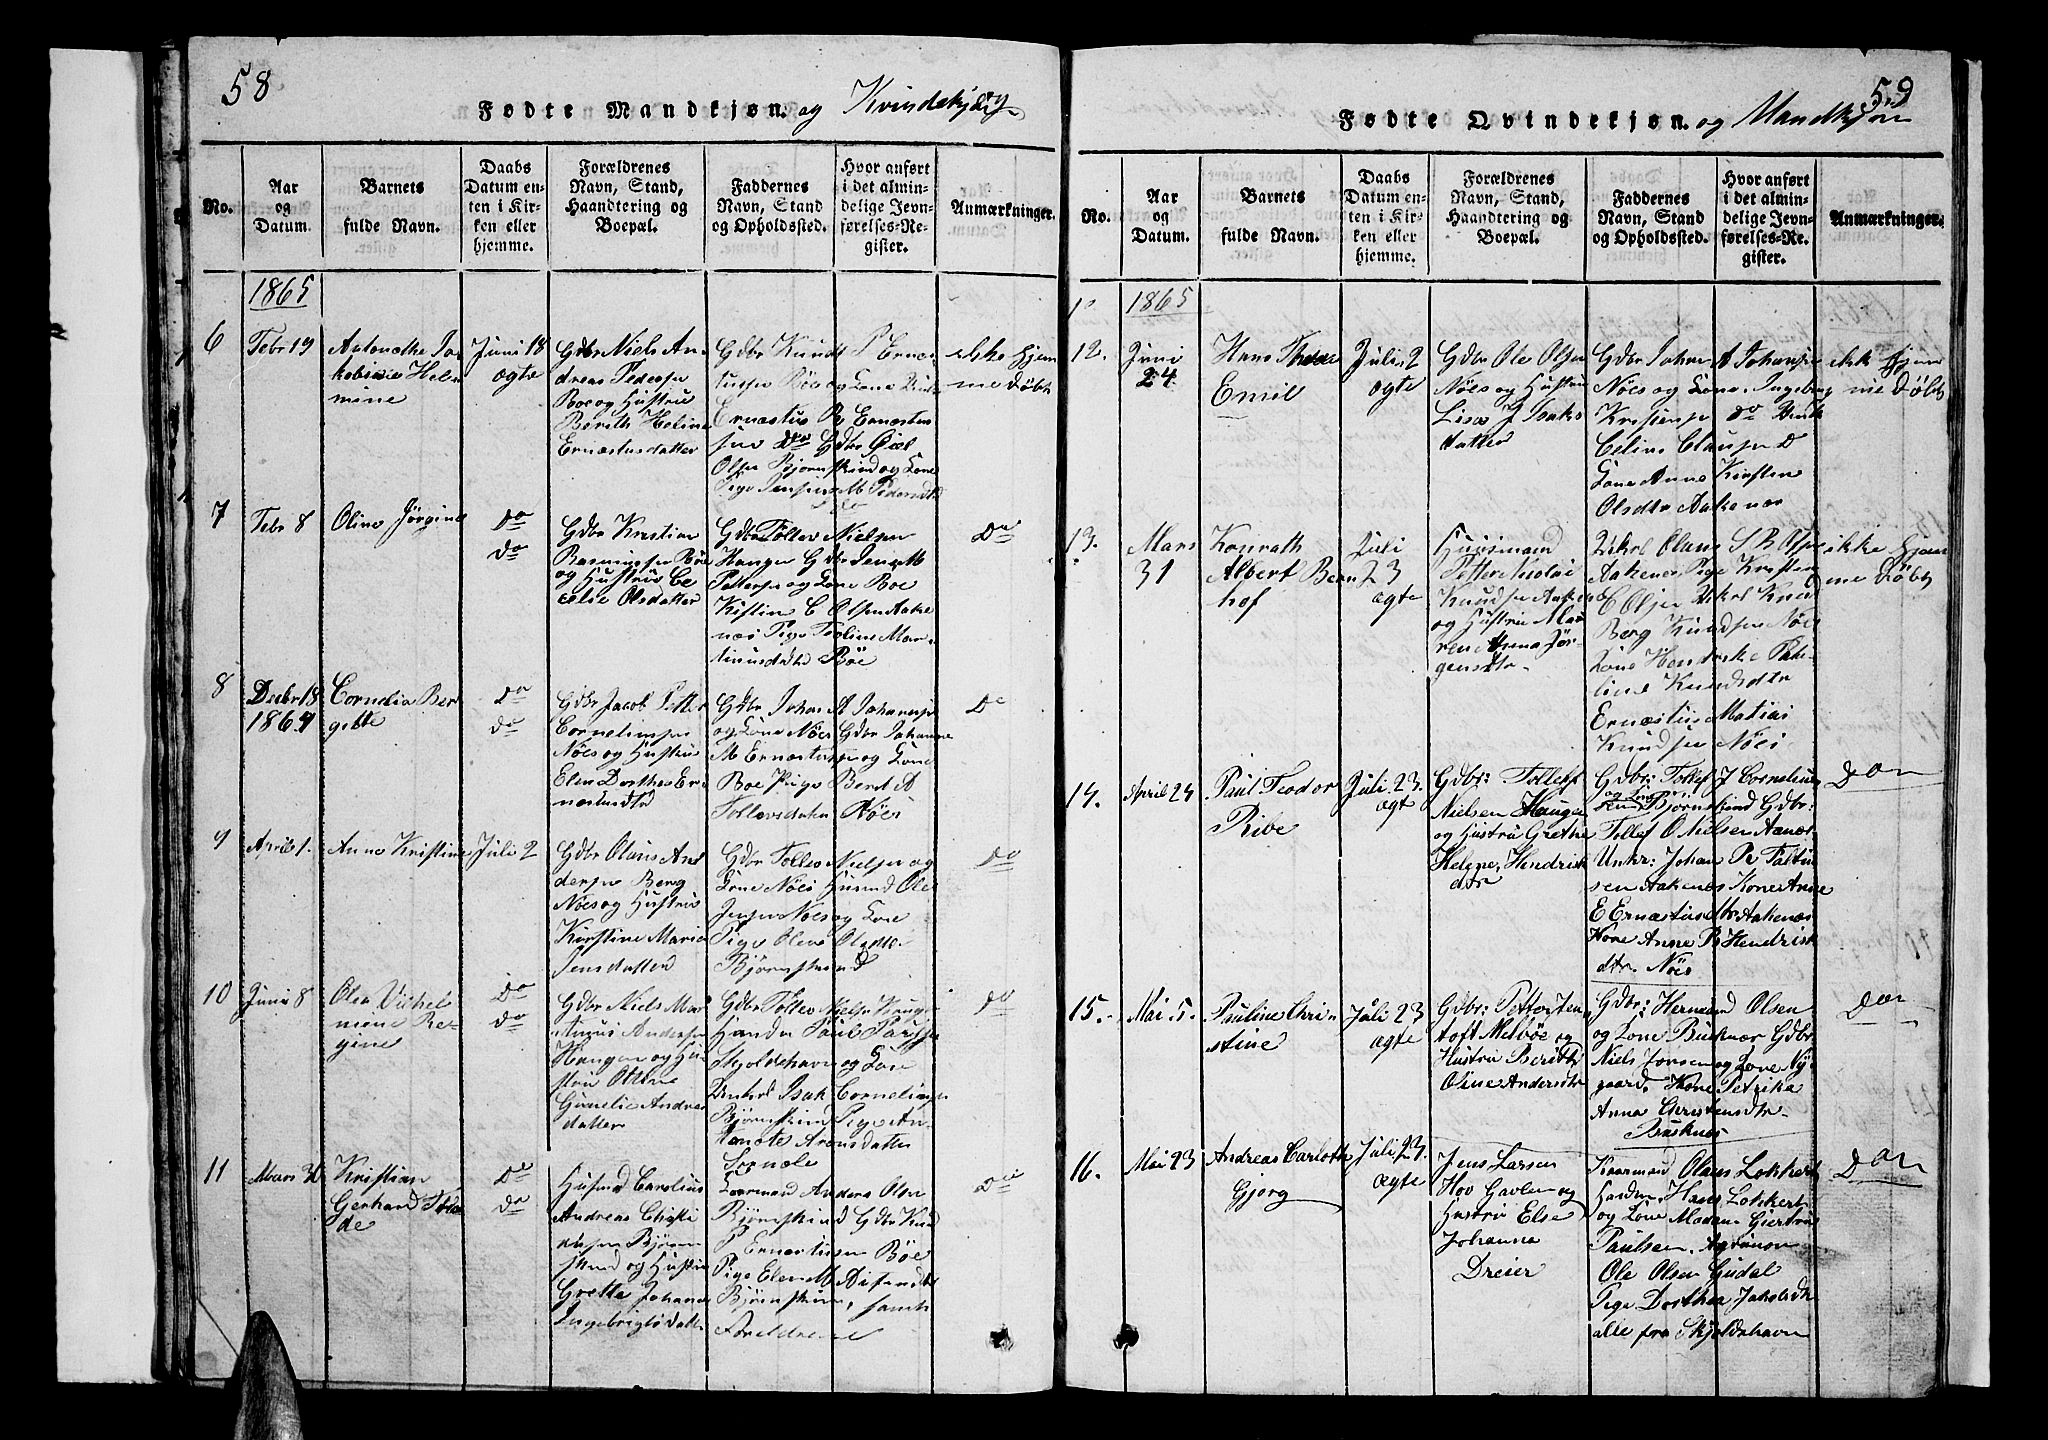 58
Fødte Mandkjøn. og Kvindekjøn
No.
Aar
og
Datum.
Barnets
fulde Navn.
Daabs
Datum en-
ten i Kir-
ken eller
hjemme.
Forældrenes
Navn, Stand,
Haandtering og
Boepæl.
Faddernes
Navn, Stand
og Opholdssted.
Hvor anført
i det almin-
delige Jevn-
førelses-Re-
gister.
Anmærkninger.
1865
6
Febr 19
Antonethe Ja-
kobine Hel-
mine
Juni 18
ægte
Gdbr Niels An-
dreas Peders
Boe og Hustru
Bereth Heline
Ernæstusdatter
Gdbr Knudt P Ernæs-
Böe og Kone
Ernæstus B Ernæstus-
sen Gdbr
Olsen Bjørnskind og Kone
Pige M Pedersdtr
ikke hjem-
me døbt
7
Febr 8
Oline Jørgine
Do
Do
Gdbr Kristian
Rasmussen Böe
og Hustru Ce-
celie Olsdatter
Gdbr Tollev Nielsen
Haugen Gdbr
Pettersen og Kone Boe
Kistin C Olsen Aake-
næs Pige Mar-
tinusdatter Böe
Do
8
Decbr 18
1864
Cornelia Ber-
gitte
Do
Do
Gdbr Jacob Petter
Corneliussen
Nöes og Hustru
Elen Dorthea Er-
næstusdtr
Gdbr Johan A Johansen
og Kone Nöes Gdbr Johannes
M Ernæstussen og Kone
Boe Pige Berit A
Tollevsdatter Nöes
Do
9
April 1.
Anne Kristine
Juli 2
Gdbr Olaus An-
dersen Berg
Nöes og Hustru
Kirstine Maria
Jensdatter
Gdbr Tollev Nielsen og
Kone Nöes Husmd Ole
Jensen Nöes og Kone
Pige Oline Olsdtr
Bjørnskind
Do
10
Juni 8
Olea Vichel-
mine Re-
gine
Do
Do
Gdbr Niels Mar-
tinus Andersen
Haugen og Hu-
stru Oline
Cornelie Andreas-
datter
Gdbr Tollev Nielsen Haug
Handm Paul Paulsen
Skjoldehavn og Kone
Isak Corneliussen
Bjørnskind Pige An-
tonete Aronsdatter
Do
11
Mars 30
Kristian
Gerhard
Do
Do
Husmd Carolius
Andreas Christi-
ansen Bjørn-
skind og Hustru
Grethe Johanna
Ingebrigtsdatter
Kaarmand Anders Olsen
Bjørnskind Gdbr Knud
P Ernæstussen Böe
Pige Elen M
Bjørnskind, samt
Forældrene
Do
59
Fødte Qvindekjøn. og Mandkjøn
No.
Aar
og
Datum.
Barnets
fulde Navn.
Daabs
Datum en-
ten i Kir-
ken eller
hjemme.
Forældrenes
Navn, Stand,
Haandtering og
Boepæl.
Faddernes
Navn, Stand
og Opholdssted.
Hvor anført
i det almin-
delige Jevn-
førelses-Re-
gister.
Anmærkninger.
1865
12.
Juni
24
Hans
Emil
Juli 2
ægte
Gdbr Ole Olsen
Nöes og Hustru
Lisa J Isaks-
datter
Gdbr Johan A Johansen
Nöes og Kone, Ingeborg
Do
Celius Clausen D
Kone Anne Kirstine
Olsdtr Aakenæs
ikke hjem-
me døbt
13.
Mars
31
Konrath
Albert Bern-
hof
Juli
23
ægte
Huusmand
Petter Nicolai
Knudsen Aakenæs
og Hustru Ma-
ren Anna Jør-
gensdtr
Olaus S B Olsen
Aakenæs Pige Kristine
C Olsen Knud
Berg Knudsen Nöes
Kone Hendrikke Pau-
line Knudsdtr
Ernæstus Matias
Knudsen Nöes
ikke hjem-
me døbt
14.
April 24
Paul Teodor
Ribe
Juli 23.
ægte
Gdbr: Tollef
Nielsen Haugen
og Hustru Grethe
Helene Hendriks-
dtr
Gdbr: Tollef J Cornelius-
sen og Kone Bjørnskind Gdbr:
Tollef O Nielsen Aanæs
Unkr: Johan P Faltin-
sen Aakenæs Kone Anne
E Ernæstusdtr Aakenæs
Kone Anne B Hendriks-
dtr. Nöes
Do
15.
Mai 5.
Pauline Chri-
stine
Juli 23
ægte
Gdbr: Petter Jen-
toft Melböe og
Hustru Beritt
Oline Andersdtr
Gdbr: Hermand Olsen
og Kone Buknæs Gdbr
Niels Jensen og Kone Ny-
gaard. Kone Petrika
Anna Christensdtr
Buknæs
Do
16.
Mai 23
Andreas Carloth
Gjørg
Juli 23.
ægte
Jens Larsen
Hov Gavlen og
Hustru Else
Johanna
Dreier
Kaarmand Olaus Lokkert
Hans Lokkert
og Kone Madam Giertru
Paulsen.
Ole Olsen Gudal
Pige Dorthea Jakobsdtr
alle fra Skjoldehavn
Do